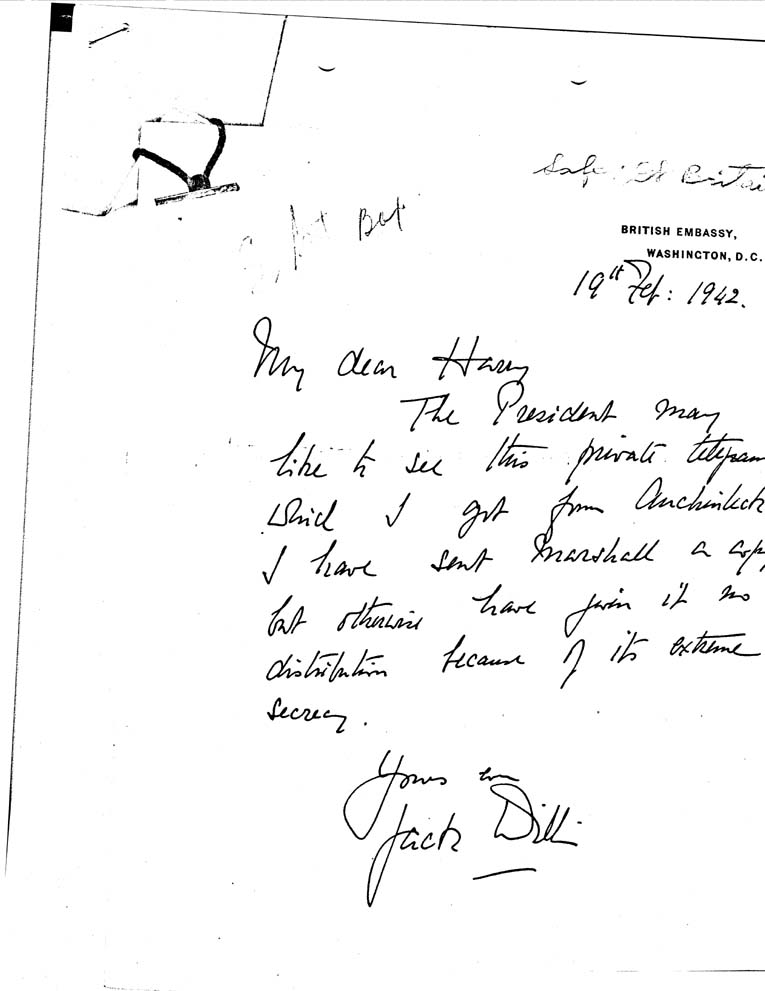 Safe: Gt Britai
Bot
BRITISH EMBASSY,
WASHINGTON, D.C.
19th Feb: 1942.
My dear Harry
The President may
like to see this private telegram
which I got from Auchinleck
I have sent Marshall a copy
but otherwise have given it no
distribution because of its extreme
secrecy.
Yours ever
Jack Dill